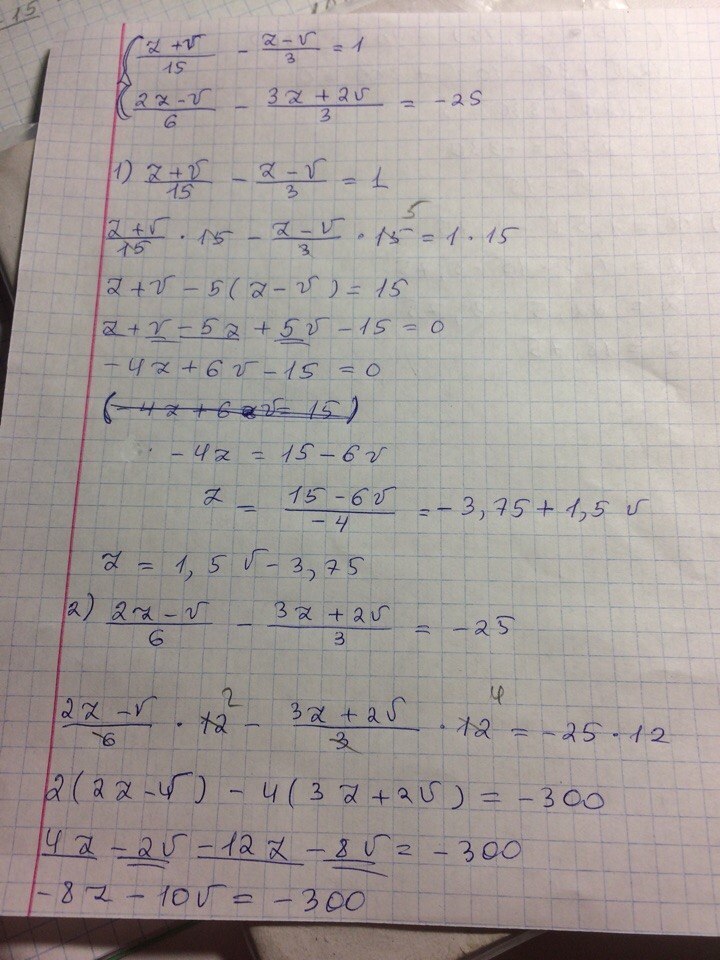 { (z+v)/15 - (z-v)/3 = 1
(2z-v)/6 - (3z+2v)/3 = -25
1) (z+v)/15 - (z-v)/3 = 1
(z+v)/15 · 15 - (z-v)/3 · 15 5 = 1 · 15
z+v - 5(z-v) = 15
z+v-5z+5v-15=0
-4z+6v-15=0
-4z = 15-6v
z = (15-6v)/-4 = -3,75+1,5v
z = 1,5v-3,75
2) (2z-v)/6 - (3z+2v)/3 = -25
(2z-v)/6 · 12 2 - (3z+2v)/3 · 12 4 = -25·12
2(2z-v) - 4(3z+2v) = -300
4z-2v-12z-8v = -300
-8z-10v = -300